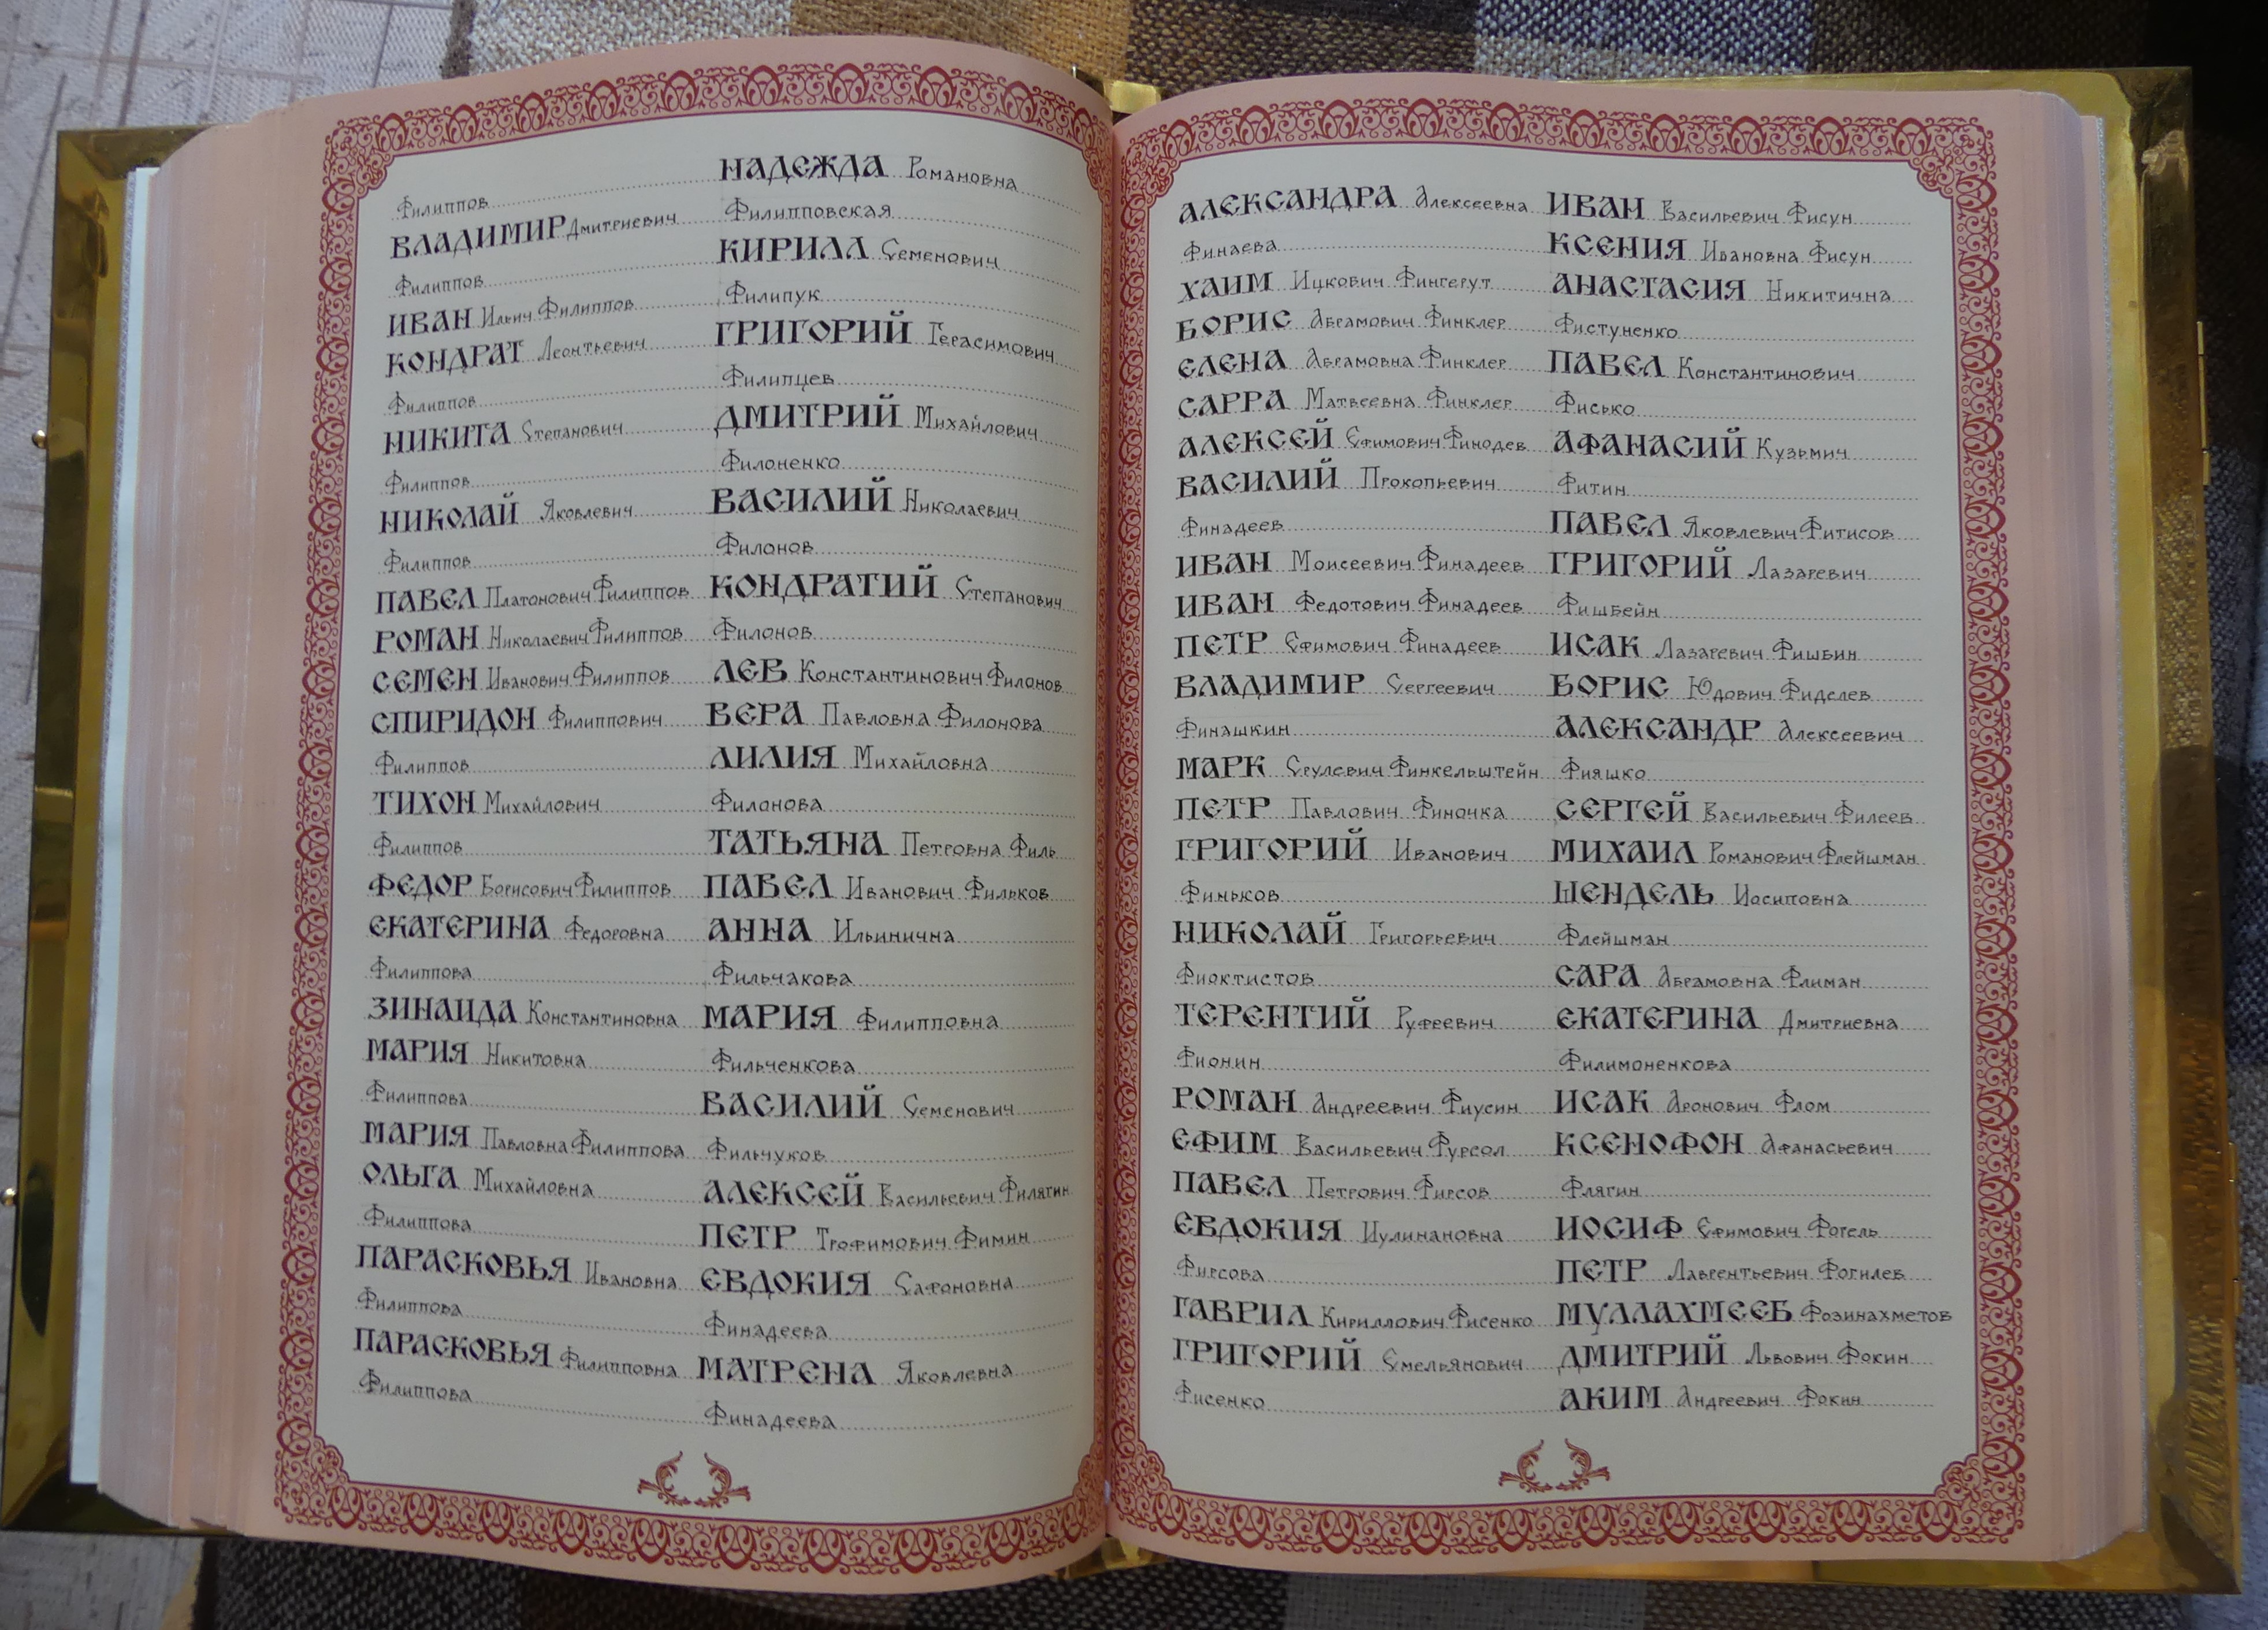 Филиппов
ВЛАДИМИР Дмитриевич
Филиппов
ИВАН Ильич Филиппов
КОНДРАТ Леонтьевич
Филиппов
НИКИТА Степанович
Филиппов
НИКОЛАЙ Яковлевич
Филиппов
ПАВЕЛ Платонович Филиппов
РОМАН Николаевич Филиппов
СЕМЕН Иванович Филиппов
СПИРИДОН Филиппович
Филиппов
ТИХОН Михайлович
Филиппов
ФЕДОР Борисович Филиппов
ЕКАТЕРИНА Федоровна
Филиппова
ЗИНАИДА Константиновна
МАРИЯ Никитовна
Филиппова
МАРИЯ Павловна Филиппова
ОЛЬГА Михайловна
Филиппова
ПАРАСКОВЬЯ Ивановна
Филиппова
ПАРАСКОВЬЯ Филипповна
Филиппова
НАДЕЖДА Романовна
Филипповская
КИРИЛЛ Семенович
Филипук
ГРИГОРИЙ Герасимович
Филипцев
ДМИТРИЙ Михайлович
Филоненко
ВАСИЛИЙ Николаевич
Филонов
КОНДРАТИЙ Степанович
Филонов
ЛЕВ Константинович Филонов
ВЕРА Павловна Филонова
ЛИЛИЯ Михайловна
Филонова
ТАТЬЯНА Петровна Филь
ПАВЕЛ Иванович Фильков
АННА Ильинична
Фильчакова
МАРИЯ Филипповна
Фильченкова
ВАСИЛИЙ Семенович
Фильчуков
АЛЕКСЕЙ Васильевич Филягин
ПЕТР Трофимович Фимин
ЕВДОКИЯ Сафоновна
Финадеева
МАТРЕНА Яковлевна
Финадеева
АЛЕКСАНДРА Алексеевна
Финаева
ХАИМ Ицкович Фингерут
БОРИС Абрамович Финклер
ЕЛЕНА Абрамовна Финклер
САРРА Матвеевна Финклер
АЛЕКСЕЙ Ефимович Финодев
ВАСИЛИЙ Прокопьевич
Финадеев
ИВАН Моисеевич Финадеев
ИВАН Федотович Финадеев
ПЕТР Ефимович Финадеев
ВЛАДИМИР Сергеевич
Финашкин
МАРК Срулевич Финкельштейн
ПЕТР Павлович Финочка
ГРИГОРИЙ Иванович
Финьков
НИКОЛАЙ Григорьевич
Фиоктистов
ТЕРЕНТИЙ Руфеевич
Фионин
РОМАН Андреевич Фиусин
ЕФИМ Васильевич Фурсол
ПАВЕЛ Петрович Фирсов
ЕВДОКИЯ Иулинановна
Фирсова
ГАВРИЛ Кириллович Фисенко
ГРИГОРИЙ Емельянович
Фисенко
ИВАН Васильевич Фисун
КСЕНИЯ Ивановна Фисун
АНАСТАСИЯ Никитична
Фистуненко
ПАВЕЛ Константинович
Фисько
АФАНАСИЙ Кузьмич
Фитин
ПАВЕЛ Яковлевич Фитисов
ГРИГОРИЙ Лазаревич
Фишбейн
ИСАК Лазаревич Фишбин
БОРИС Юдович Фиделев
АЛЕКСАНДР Алексеевич
Фияшко
СЕРГЕЙ Васильевич Филеев
МИХАИЛ Романович Флейшман
ШЕНДЕЛЬ Иосиповна
Флейшман
САРА Абрамовна Флиман
ЕКАТЕРИНА Дмитриевна
Филимоненкова
ИСАК Аронович Флом
КСЕНОФОН Афанасьевич
Флягин
ИОСИФ Ефимович Фогель
ПЕТР Лаврентьевич Фогилев
МУЛЛАХМЕЕБ Фозинахметов
ДМИТРИЙ Львович Фокин
АКИМ Андреевич Фокин